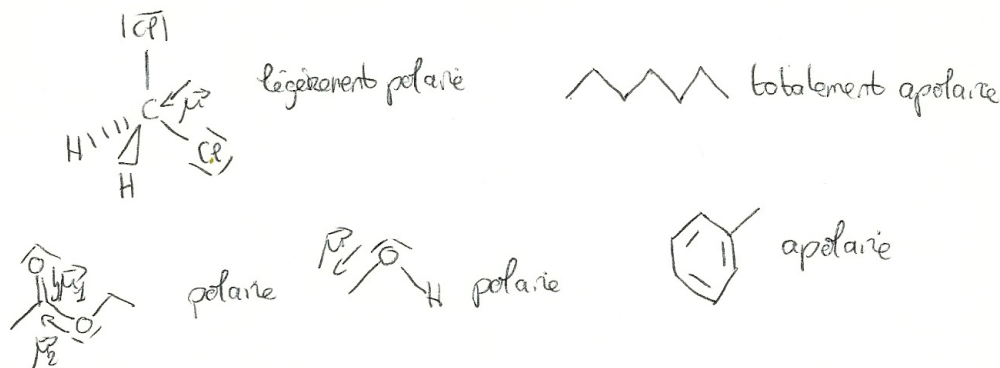 |Cl|
C μ légèrement polaire
H
Cl
H
totalement apolaire
O μ1
O
μ2
polaire
μ O
H polaire
apolaire